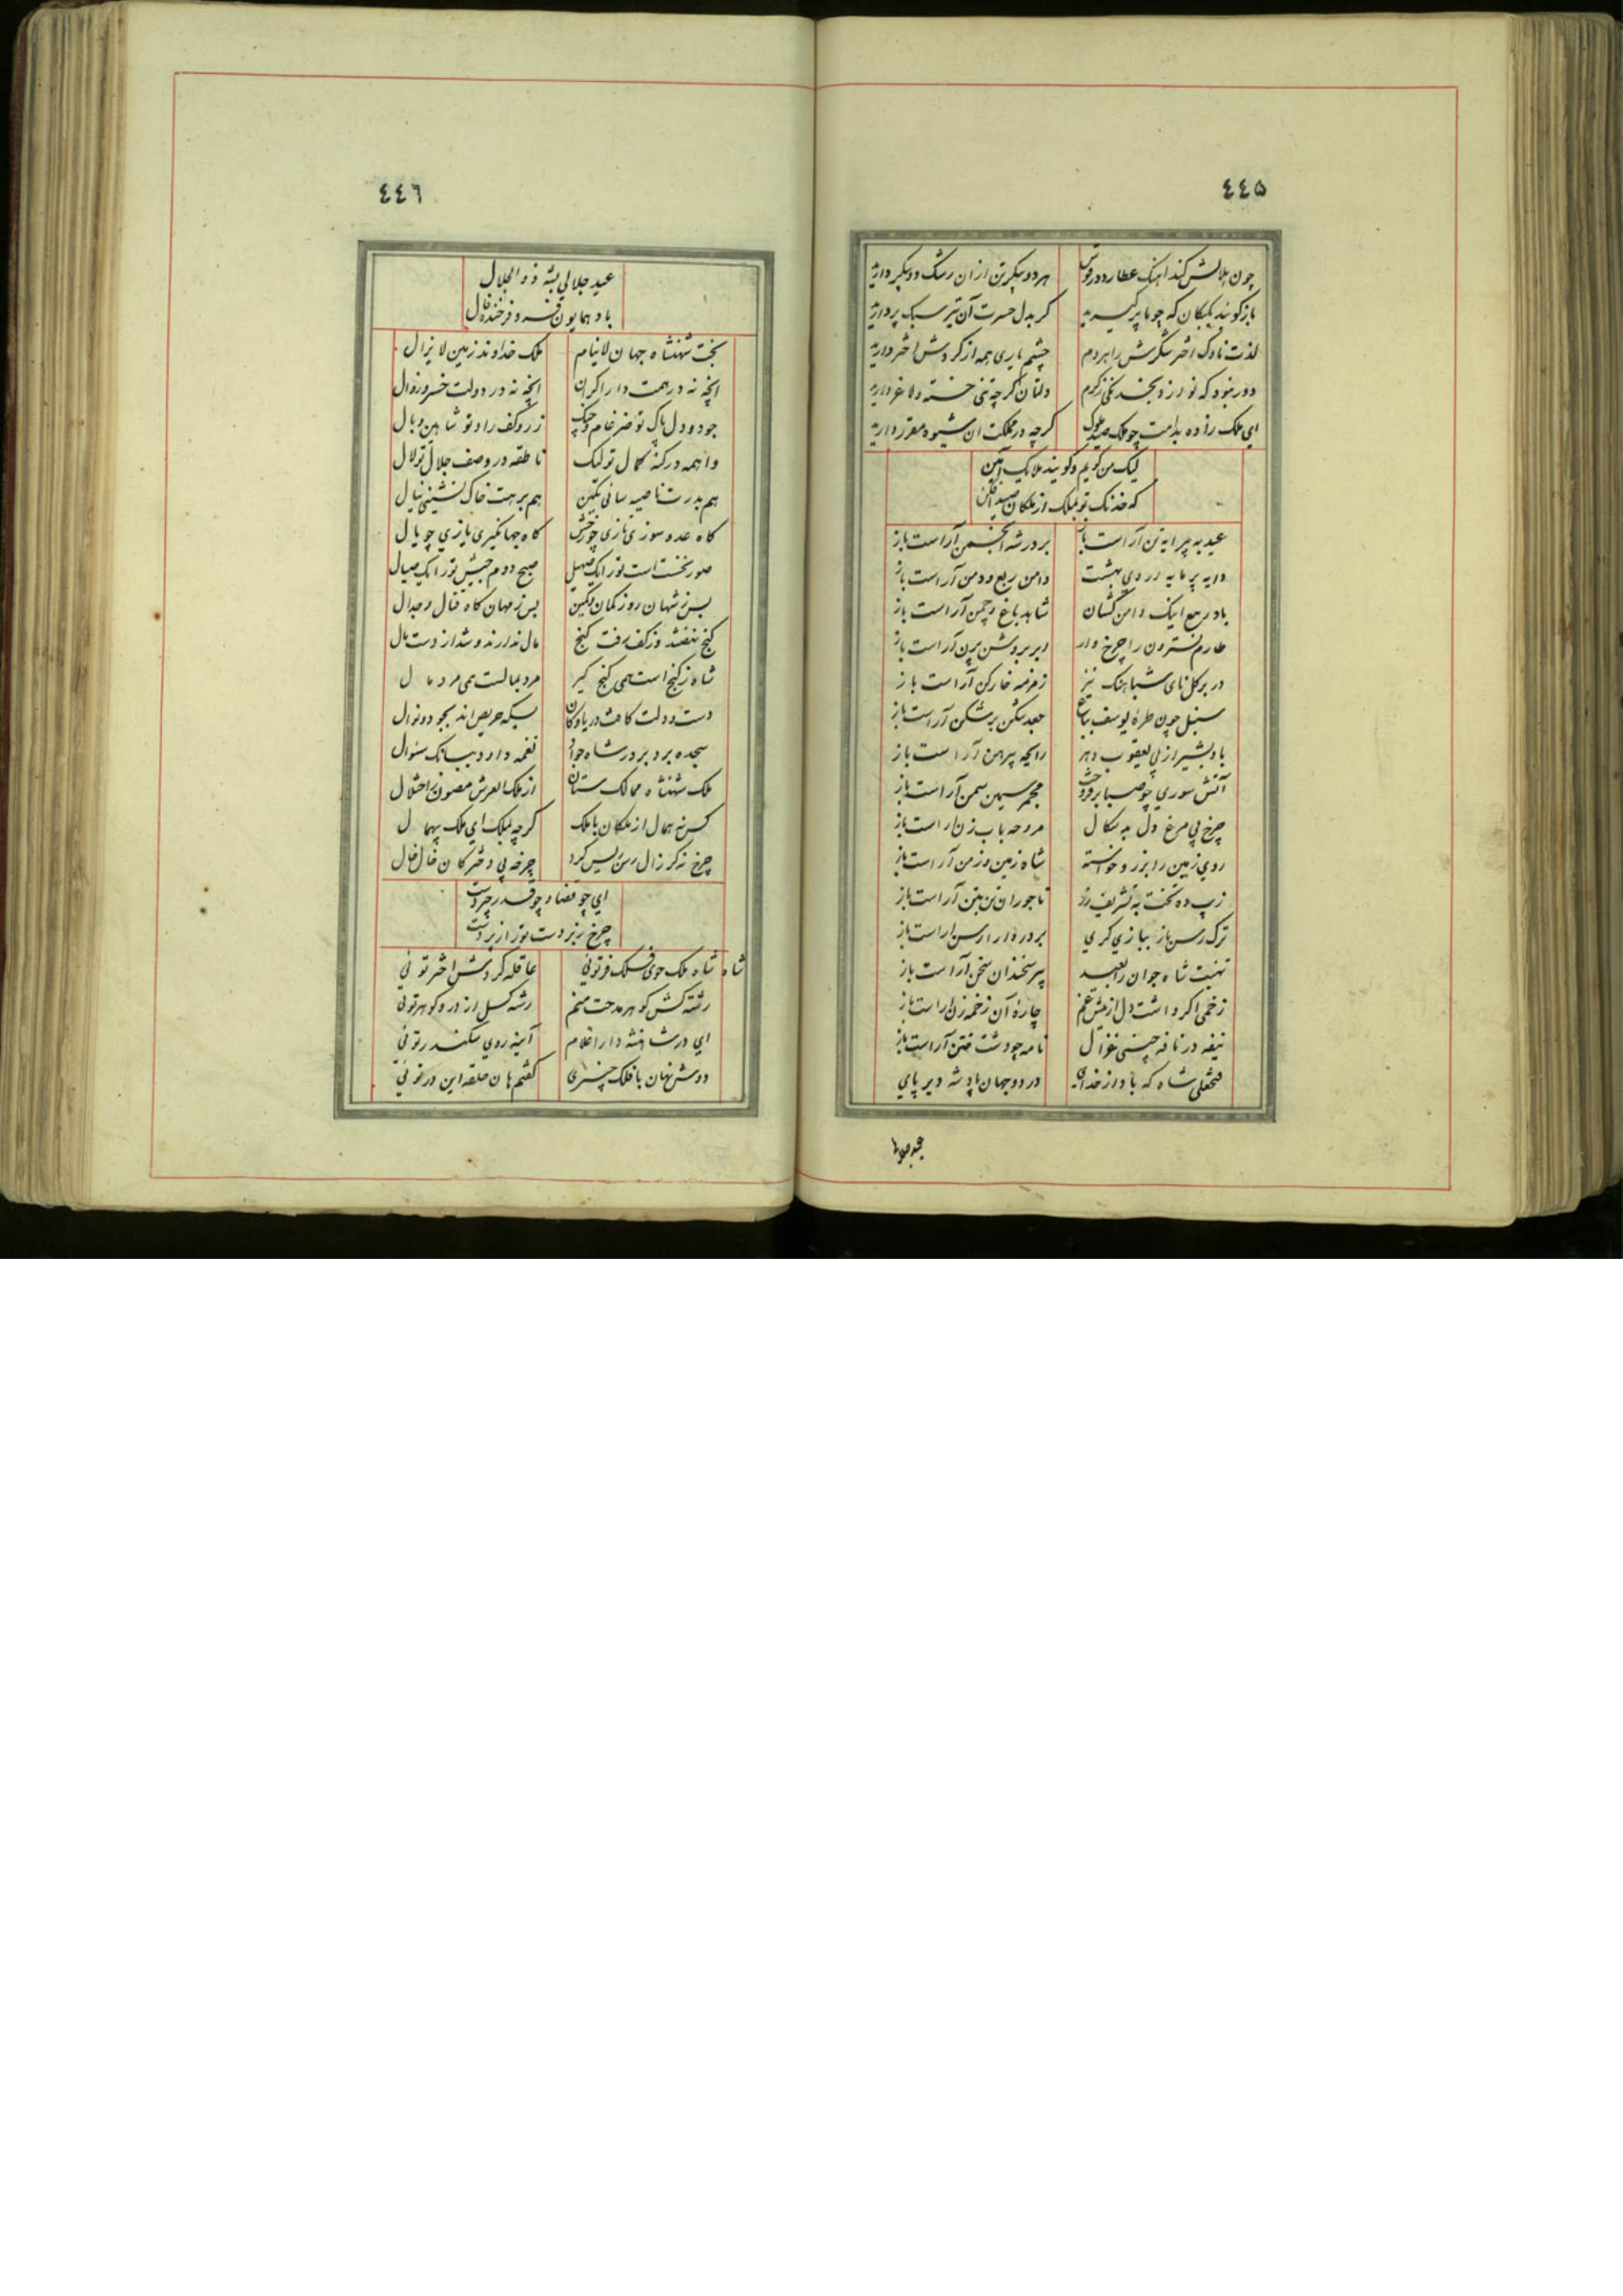 ٤٤٥
چون هلالش کند اهنک عطارد در قوس هر دو پیکرتن ازان رشک دو پیکر دارید
باز کویند یکیکان که چو ما پر کیرید کر بدل حسرت آن تیر سبک پر دارید
لذت ناوک اختر شکرش را هر دم چشم یاری همه از کردش اختر دارید
دور نبود که نوازد بخدنکی ز کرم دلتان کرچه تنی خسته و لاغر دارید
ای ملک زاده بدامت چو ملک صید ملوک کرچه در مملکت ان شیوه مقرر دارید
لیک من کویم و کویند ملایک آمین
که خدنک تو بملک از ملکان صید افکن
عید به پیرایه تن آراست باز بر در شه انجمن آراست باز
دایه پر مایه اردی بهشت دامن ربع و دمن آراست باز
باد ربیع اینک دامن کشان شاهد باغ و چمن آراست باز
طارم نسترون را چرخ وار ابر بر وشن پرن آراست باز
در بر کل نای شباهنک نیز زمزمه خارکن آراست باز
سنبل چون طره یوسف بباغ جعد شکن بر شکن آراست باز
باد بشیر از پی یعقوب دهر رایحه پیرهن آراست باز
آتش سوری چو صبا بر فروخت مجمر سیمین سمن آراست باز
چرخ پی مرغ دل بد سکال مروحه باب زن اراست باز
روی زمین را بزر و خواسته شاه زمین و زمن آراست باز
زیب ده تخت به تشریف زر تاجوران تن بتن آراست باز
ترک رسن باز ببازی کری بر در دارا رسن اراست باز
تهنیت شاه جوان را بعید پیر سخندان سخن آراست باز
زخمی اکر داشت دل از نیش غم چاره آن زخمه زن اراست باز
نیفه در نافه چینی غزال نامه چو دشت ختن آراست باز
فتحعلی شاه که باد از خدای در دو جهان پادشه دیر پای
عید جلا
٤٤٦
عید جلالی بشه ذو الجلال
باد همایون فر و فرخنده فال
بخت شهنشاه جهان لاینام ملک خداوند زمین لا یزال
انچه نه در همت دارا کران انچه نه در دولت خسرو زوال
جود و دل پاک تو ضرغام و چنک زر و کف راد تو شاهین و بال
واهمه در کنه کمال تو لیک ناطقه در وصف جلال تو لال
هم بدرت ناصیه سائی نکین هم برهت خاک نشینی نیال
کاه عدو سوزی نازی چو رخش کاه جهانکیری یازی چو یال
صور نخست است تو را یک صهیل صبح دوم جیش تو را یک صیال
بس ز شهان روز کمان و کمین بس ز مهان کاه قتال و جدال
کنج ننهفتند و ز کف رفت کنج مال ندادند و شد از دست مال
شاه ز کنج است همی کنج کیر مرد بمالست همی مرد مال
دست و دلت کافت دریا و کان بسکه حریص اند بجود و نوال
سجده برد بر در شاه جواد نغمه داود ببانک سئوال
ملک شهنشاه ممالک ستان از ملک العرش مصون ز اختلال
کس نه همال از ملکان با ملک کرچه بملک ای ملک بیهمال
چرخ نه کر زال رسن ریس کرد چرخه پی دختر کان خال خال
ای چو قضا و چو قدر چیردست
چرخ زبر دست تو را زیر دست
شاه شاه ملک خوی فلک فر توئی عاقله کردش اختر توئی
رشته کش کوهر مدحت منم رشته کسل از در و کوهر توئی
ای در شاهنشه دارا غلام آینه روی سکندر توئی
دوش نهان با فلک چنبری کفتم هان حلقه این در توئی